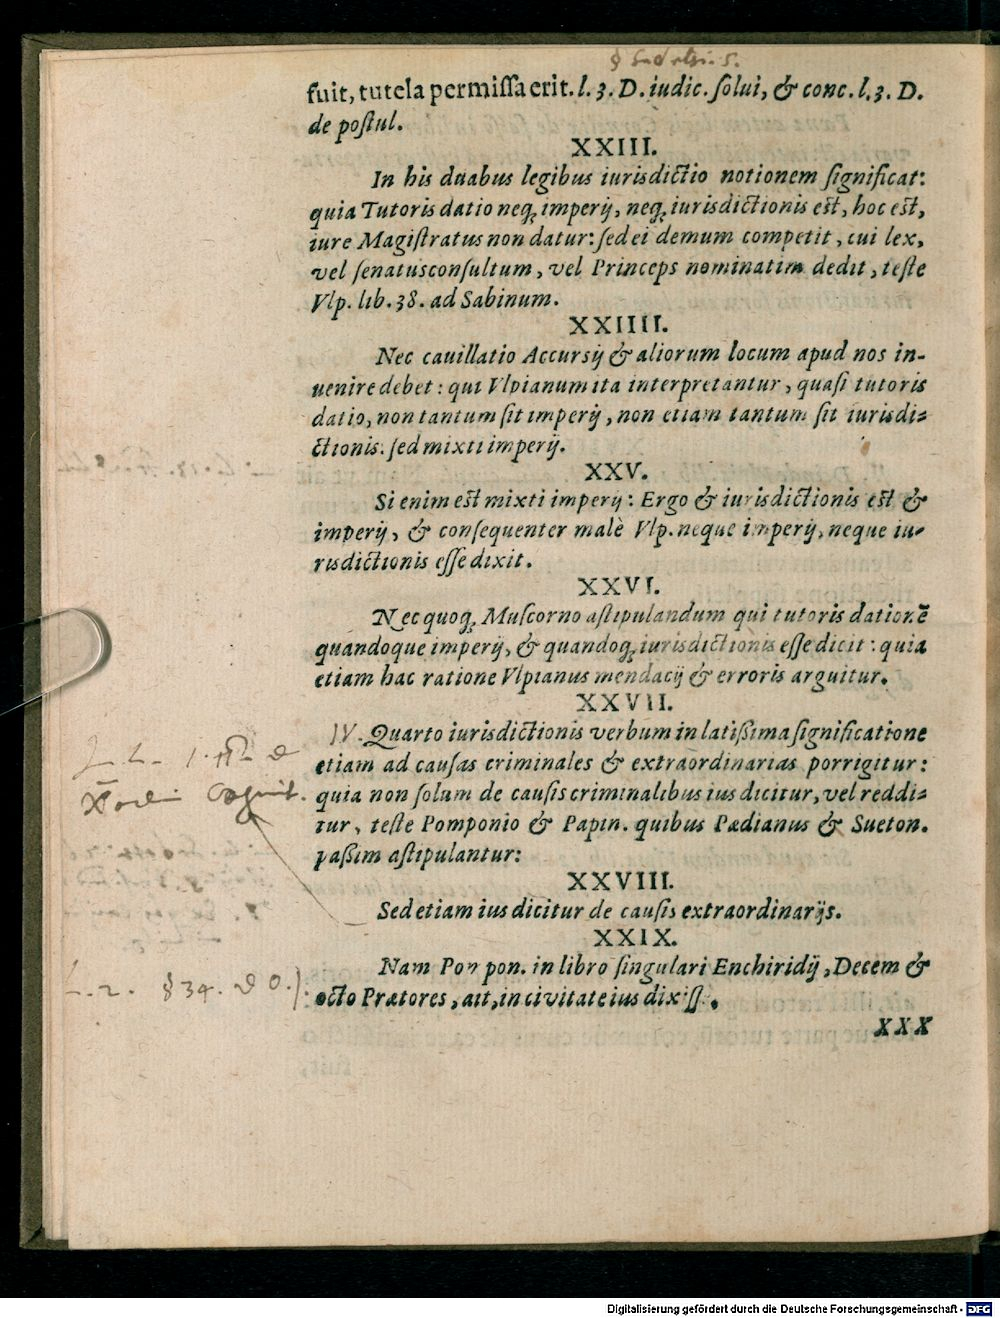 fuit, tutela permissa erit. l. 3. D. iudic. solui, & conc. l. 3. D.
de postul.
XXIII.
In his duabus legibus iurisdictio notionem significat:
quia Tutoris datio neq; imperij, neq; iurisdictionis est, hoc est,
iure Magistratus non datur: sed ei demum competit, cui lex,
vel senatusconsultum, vel Princeps nominatim dedit, teste
Vlp. lib. 38. ad Sabinum.
XXIIII.
Nec cauillatio Accursij & aliorum locum apud nos in-
uenire debet: qui Vlpianum ita interpretantur, quasi tutoris
datio, non tantum sit imperij, non etiam tantum sit iurisdi-
ctionis. sed mixti imperij.
XXV.
Si enim est mixti imperij: Ergo & iurisdictionis est &
imperij, & consequenter malè Vlp. neque imperij, neque iu-
risdictionis esse dixit.
XXVI.
Nec quoq; Muscorno astipulandum qui tutoris dationē
quandoque imperij, & quandoq; iurisdictionis esse dicit: quia
etiam hac ratione Vlpianus mendacij & erroris arguitur.
XXVII.
IV. Quarto iurisdictionis verbum in latißima significatione
etiam ad causas criminales & extraordinarias porrigitur:
quia non solum de causis criminalibus ius dicitur, vel reddi-
tur, teste Pomponio & Papin. quibus Pædianus & Sueton.
paßim astipulantur:
XXVIII.
Sed etiam ius dicitur de causis extraordinarijs.
XXIX.
Nam Pompon. in libro singulari Enchiridij, Decem &
L. 2. § 34. D O. J.
octo Prætores, ait, in civitate ius dixiss.
XXX
Digitalisierung gefördert durch die Deutsche Forschungsgemeinschaft - DFG